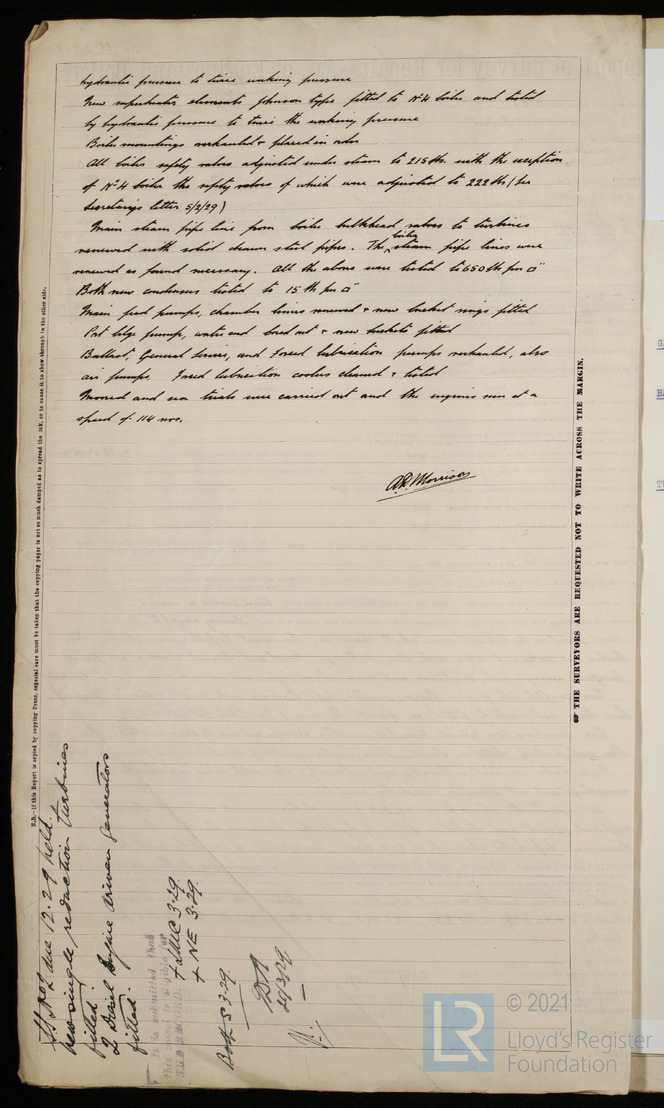 hydraulic pressure to twice working pressure
New superheater elements Johnson type fitted to Nº4 boiler and tested
by hydraulic pressure to twice the working pressure
Boiler mountings overhauled & placed in order
All boiler safety valves adjusted under steam to 215 lbs. with the exception
of Nº4 boiler the safety valves of which were adjusted to 222 lbs (See
Secretarys letter 5/2/29)
Main steam pipe line from boiler bulkhead valves to turbines
renewed with solid drawn steel pipes. The boiler steam pipe lines were
renewed as found necessary. All the above were tested to 650 lb per □"
Both new condensers tested to 15 lb per □"
Main feed pumps, chamber liners renewed & new bucket rings fitted
Port bilge pump, water end bored out & new buckets fitted
Ballast, General Service, and Forced lubrication pumps overhauled, also
air pumps. Forced lubrication coolers cleaned & tested
Moored and sea trials were carried out and the engines run at a
speed of 114 revs.
A.R. Morrison
N.B.—If this Report is copied by copying Press, especial care must be taken that the copying paper is not so much damped as to spread the ink, or to cause it to show through to the other side.
THE SURVEYORS ARE REQUESTED NOT TO WRITE ACROSS THE MARGIN.
due 12.29 held.
new single reduction turbines
fitted.
2 Diesel Engine driven generators
fitted.
It is submitted that
this vessel is eligible for
THE RECORD.
+ LMC 3.29.
+ NE 3.29.
BotS 3.29.
26/3/29
LR
© 2021
Lloyd's Register
Foundation